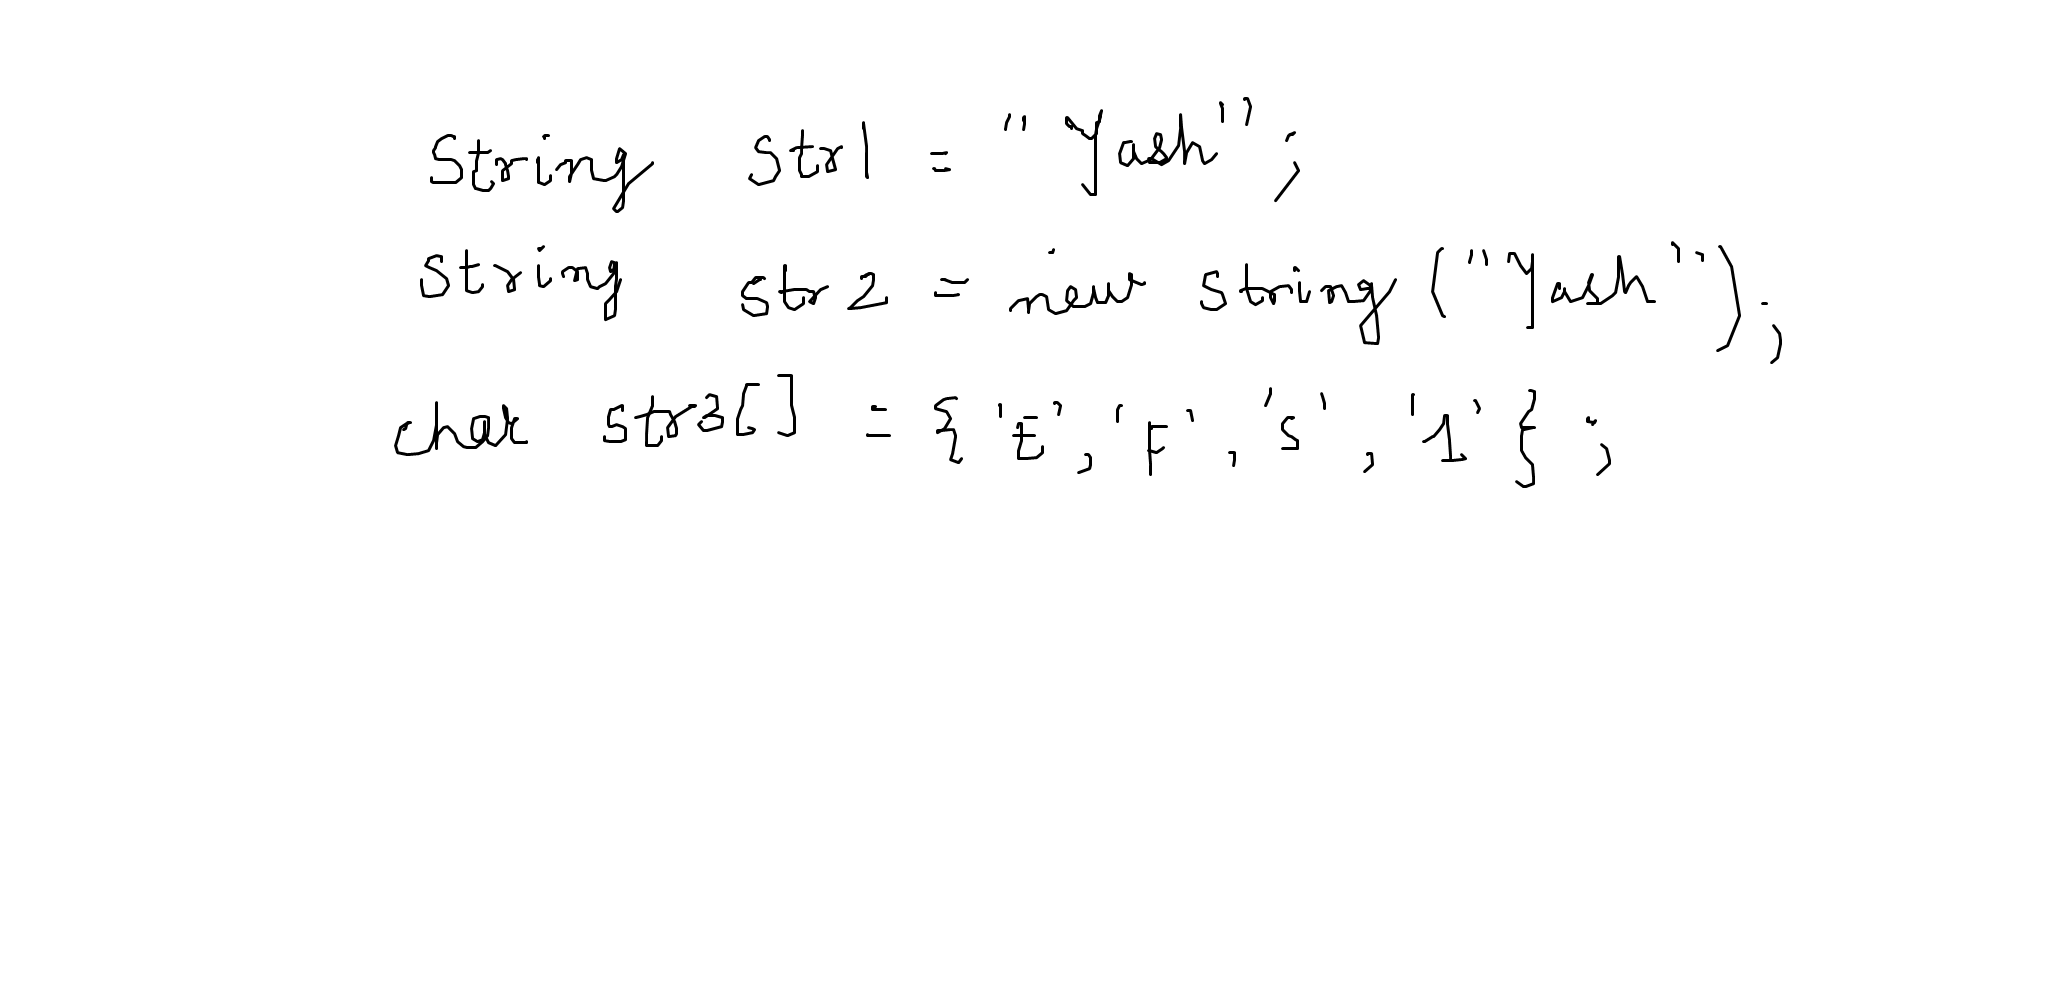 String str1 = "Yash";
String str2 = new string ("Yash");
char str3[] = {'E', 'F', 's', '1'};